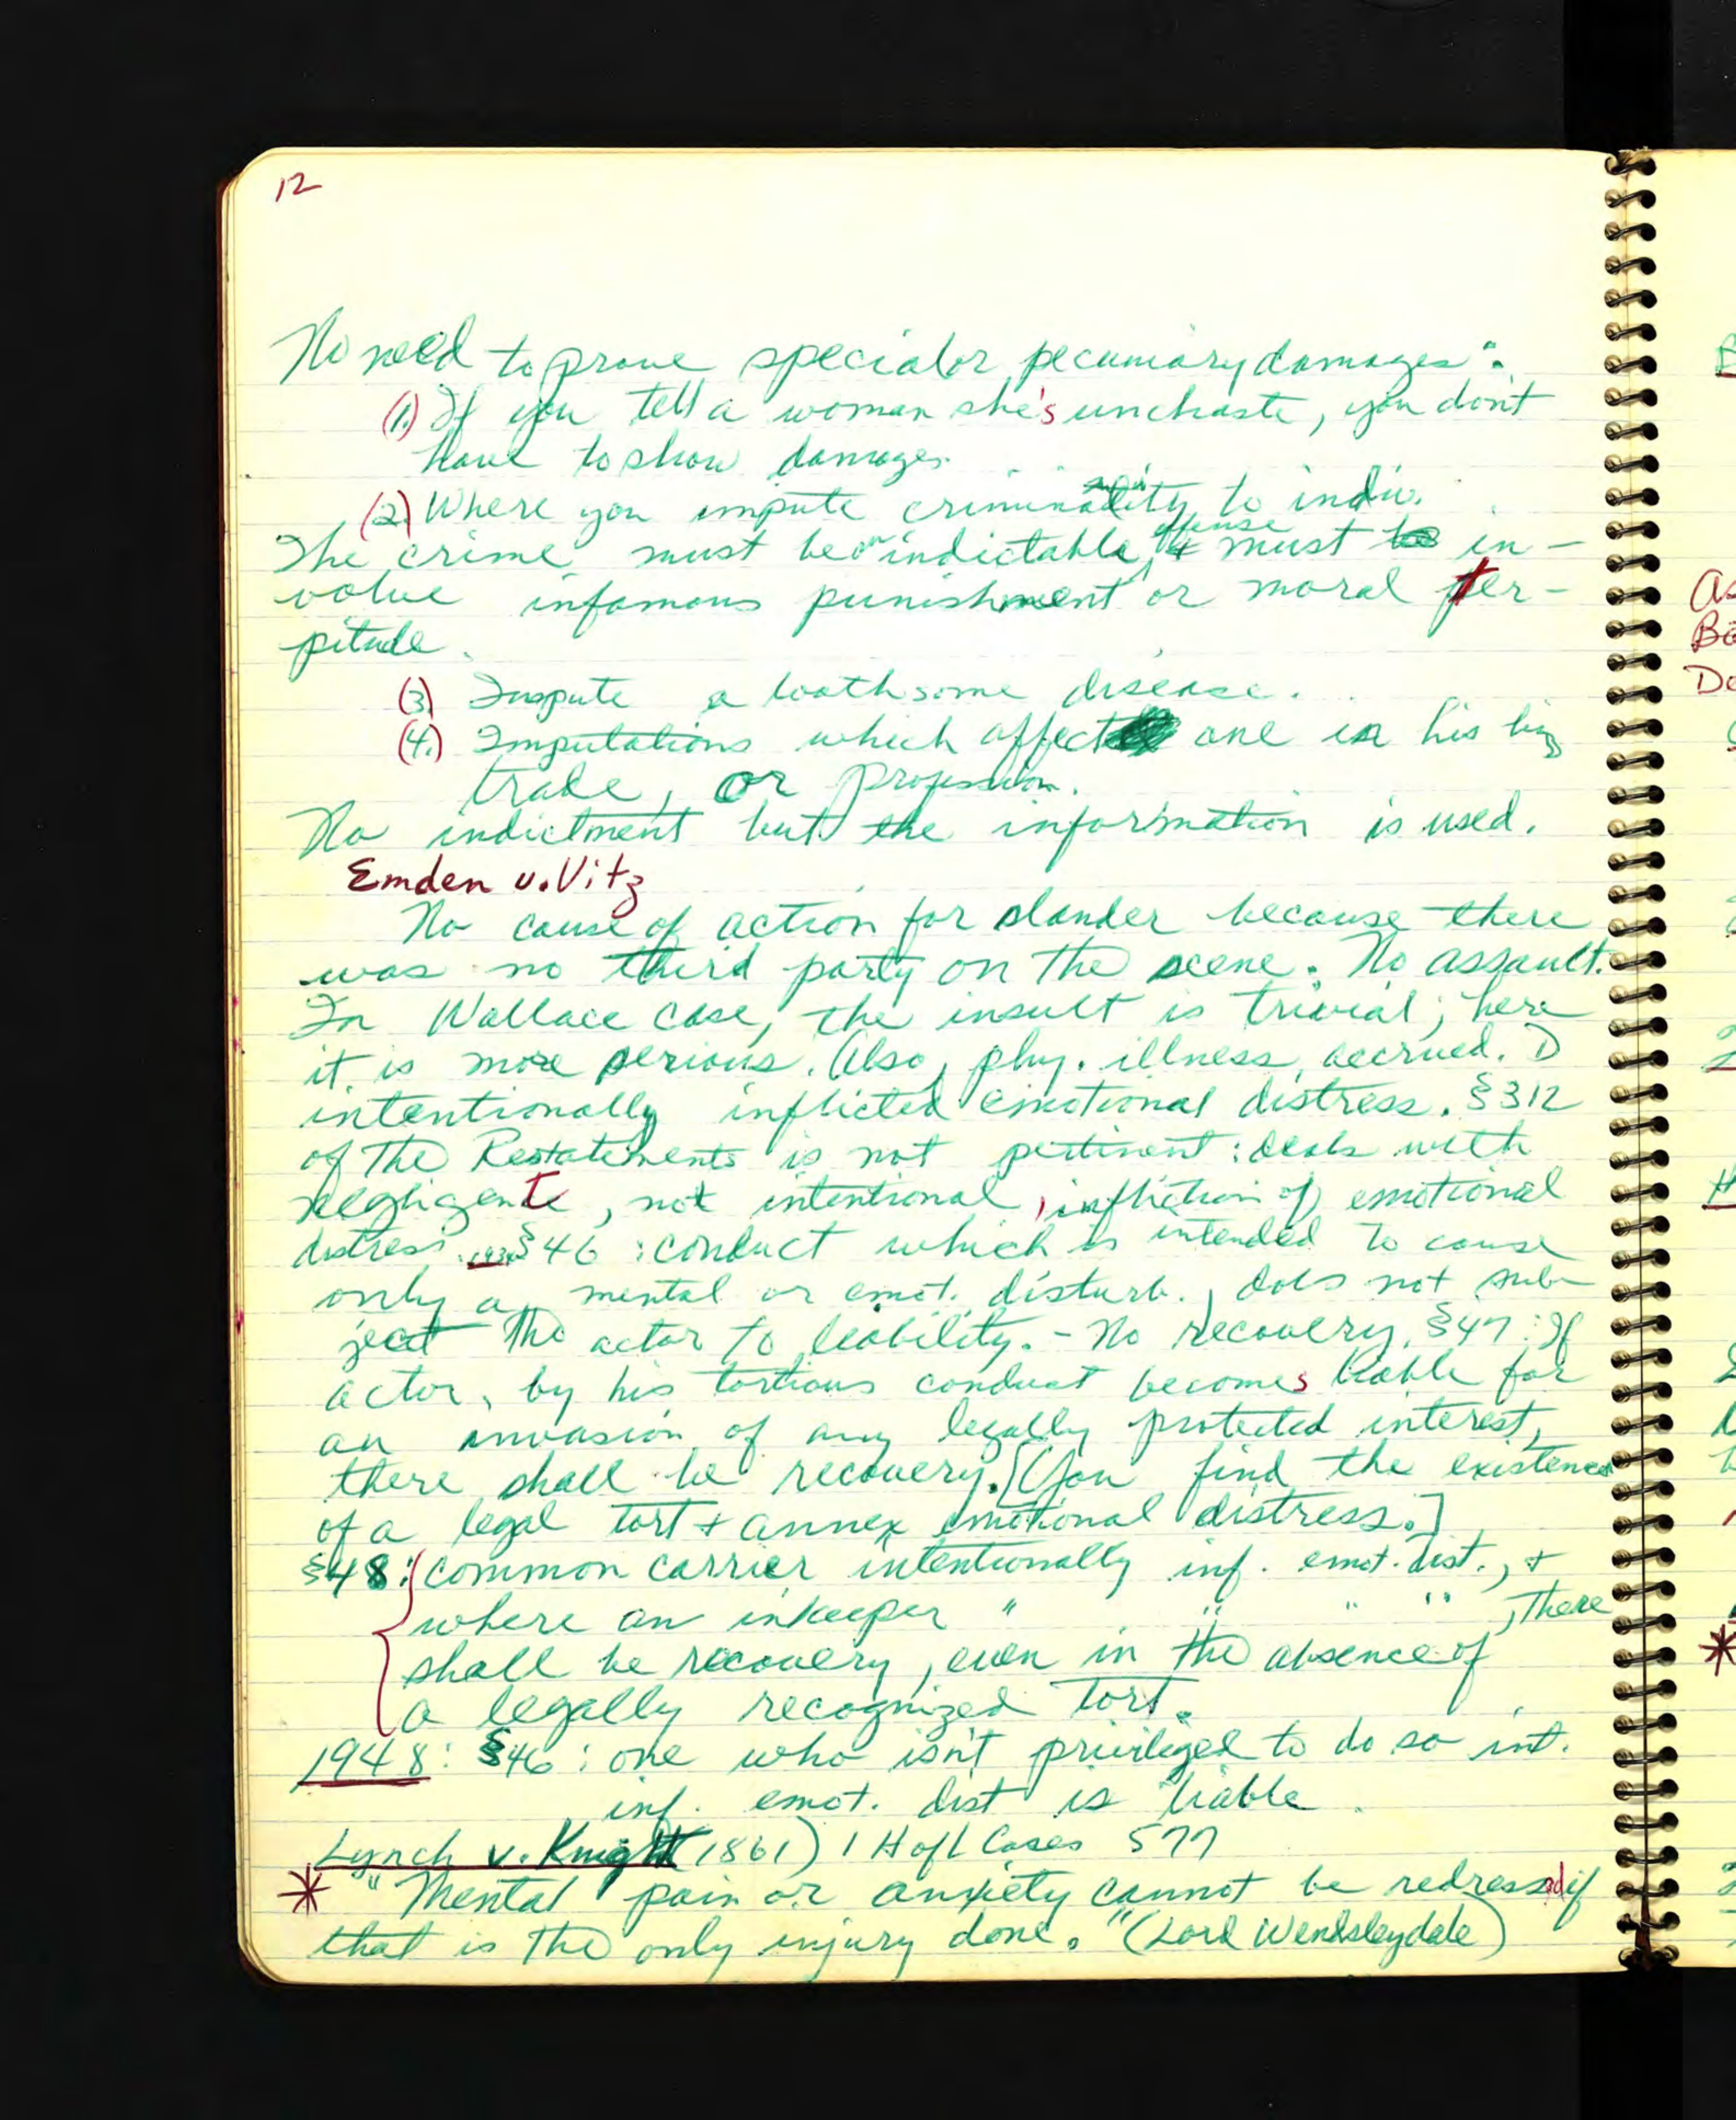 12
No need to prove special or pecuniary damages:
(1.) If you tell a woman she's unchaste, you don't
have to show damages.
(2.) Where you impute criminality to indiv.
The crime must be an indictable offense & must in-
volve infamous punishment or moral ter-
pitude.
(3) Impute a loathsome disease.
(4.) Imputations which affect one in his bis,
trade, or profession.
No indictment but the information is used.
Emden v. Vitz
No cause of action for slander because there
was no third party on the scene. No assault.
In Wallace case, the insult is trivial; here
it is more serious. Also, phy. illness accrued. D
intentionally inflicted emotional distress. §312
of the Restatements is not pertinent: deals with
negligent, not intentional, infliction of emotional
distress. 1934 §46: conduct which is intended to cause
only a mental or emot. disturb., does not sub-
ject the actor to liability. - No recovery. §47: If
actor, by his tortious conduct becomes liable for
an invasion of any legally protected interest,
there shall be recovery. [You find the existence
of a legal tort + annex emotional distress.]
§48: common carrier intentionally inf. emot. dist., +
where an inkeeper " " " ", there
shall be recovery, even in the absence of
a legally recognized tort.
1948: §46: one who isn't privileged to do so int.
inf. emot. dist is liable.
Lynch v. Knight 1861) 1 H of L Cases 577
* "Mental pain or anxiety cannot be redressed if
that is the only injury done." (Lord Wensleydale)
As
Ba
De
*